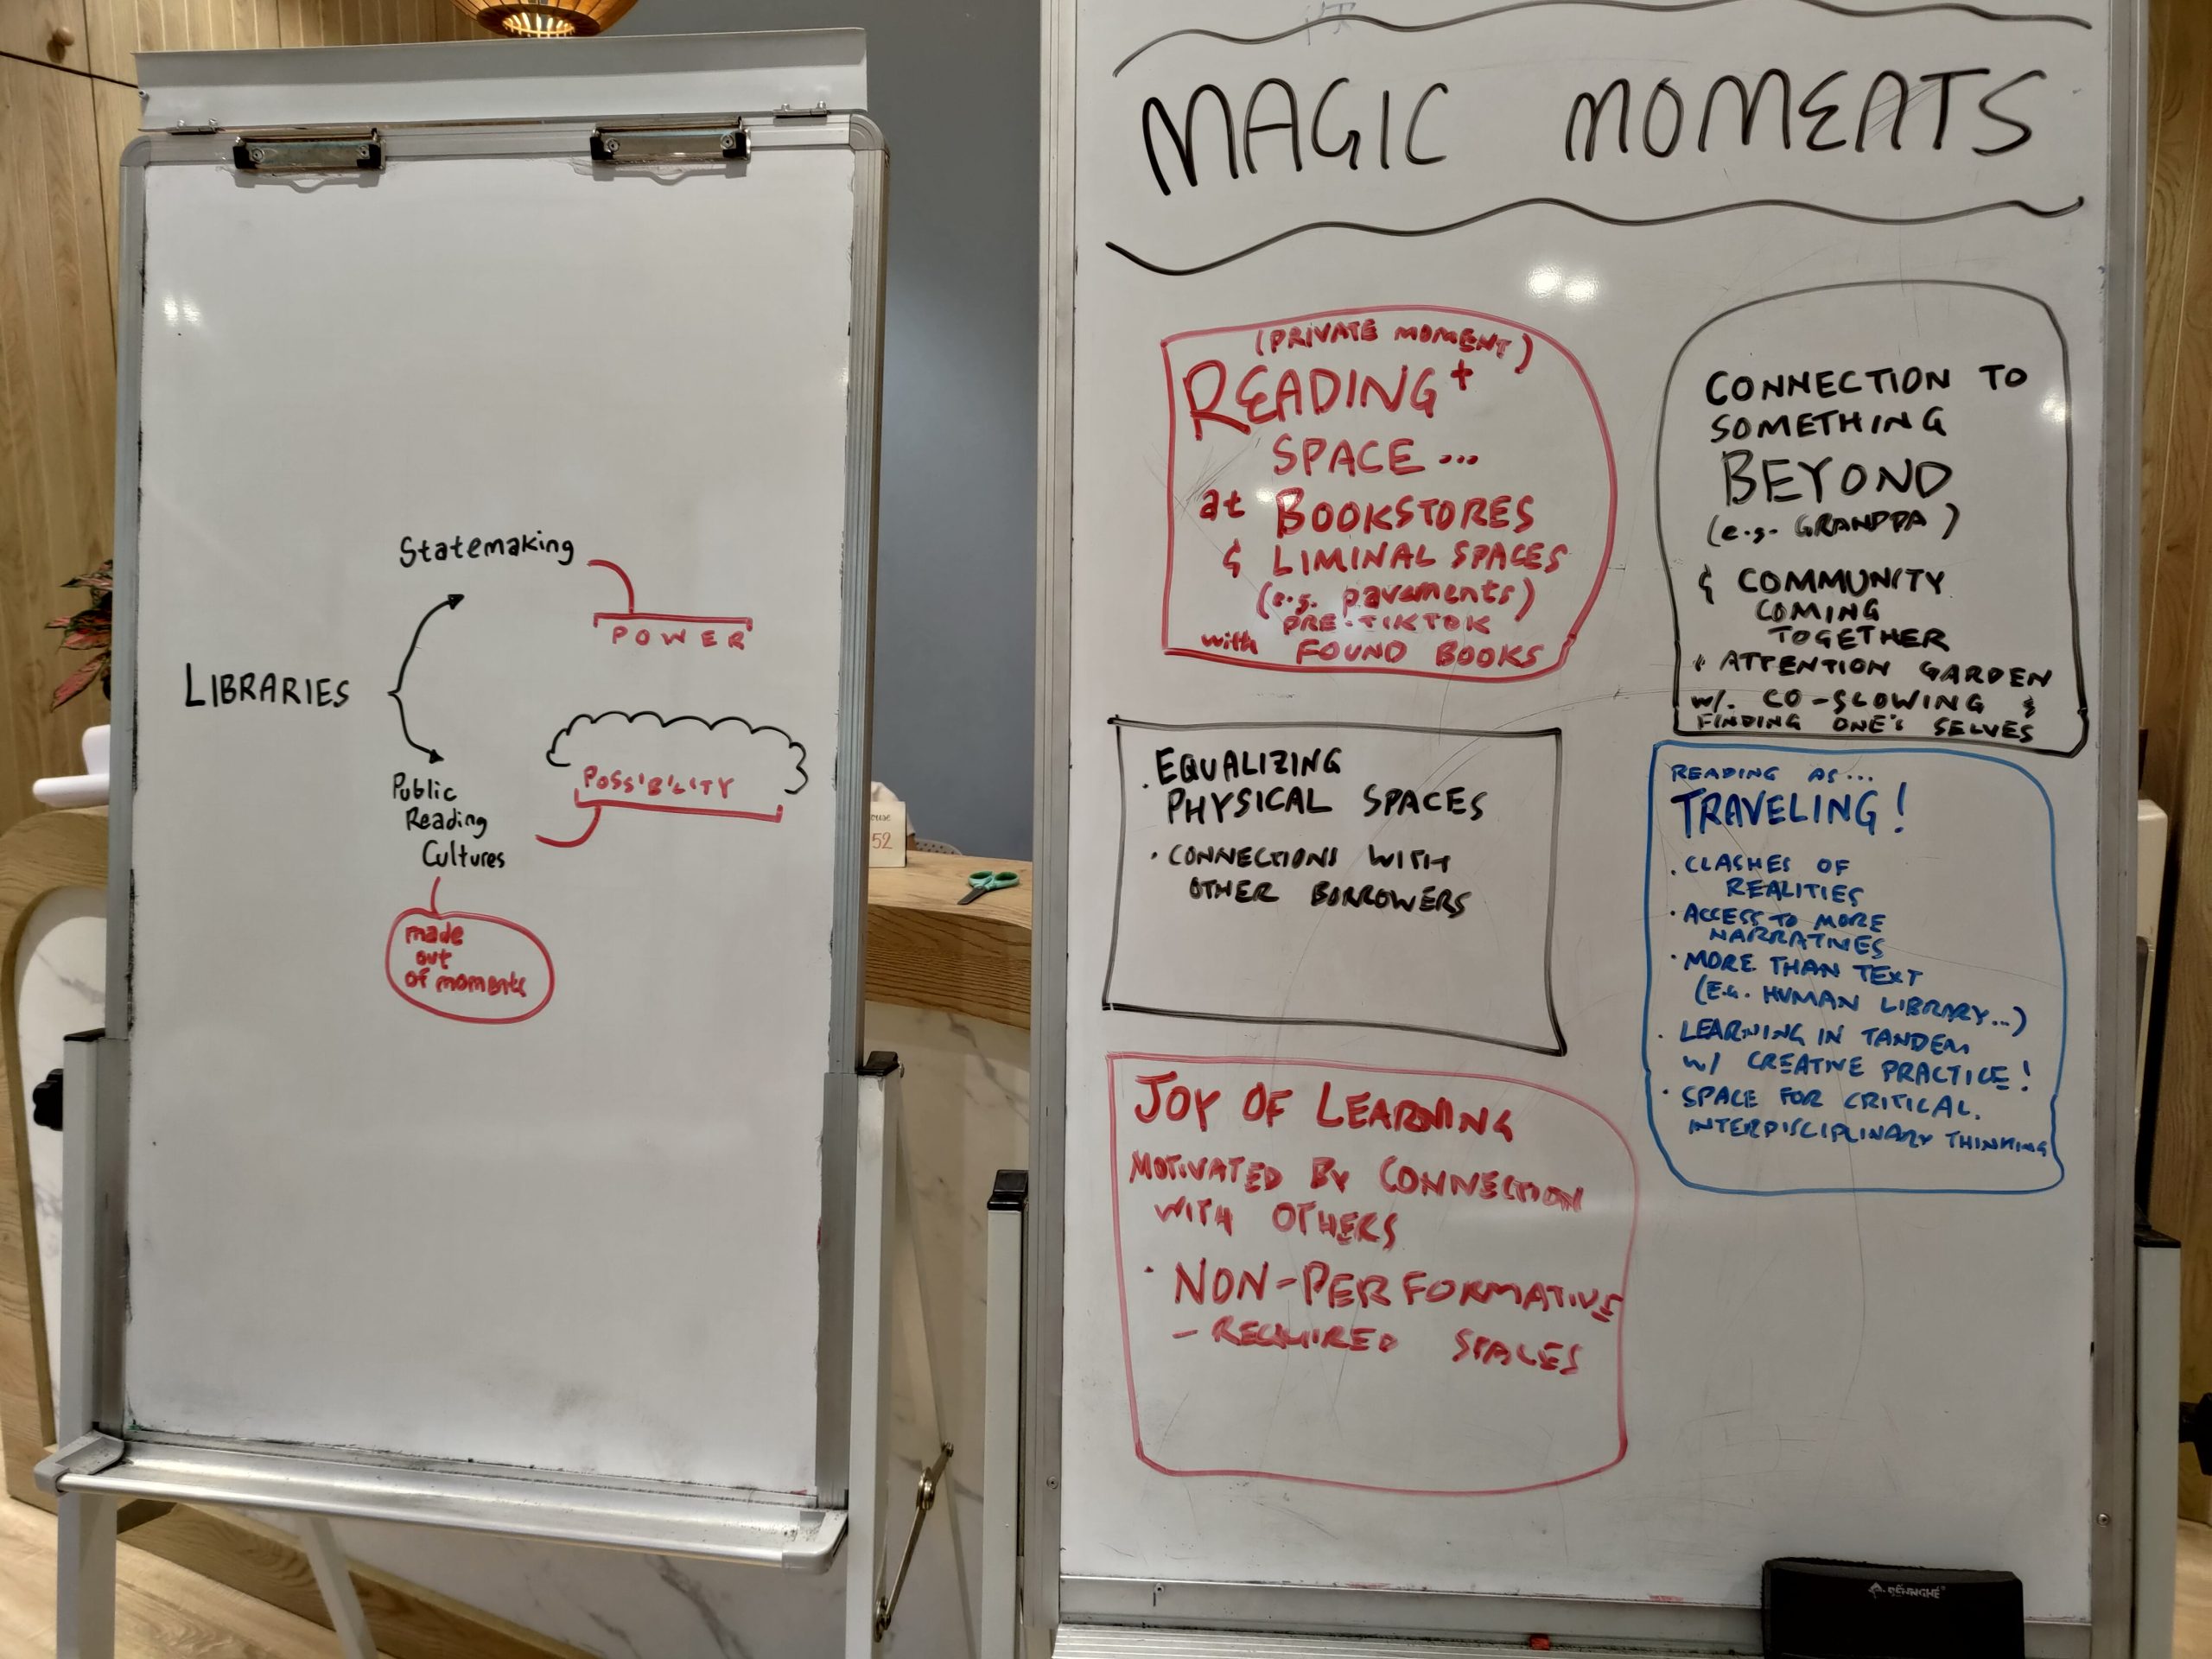 Statemaking
POWER
LIBRARIES
POSSIBILITY
Public
Reading
Cultures
made
out
of moments
52
MAGIC MOMENTS
(PRIVATE MOMENT)
READING +
SPACE ...
at BOOKSTORES
& LIMINAL SPACES
(e.g. pavements)
PRE-TIKTOK
with FOUND BOOKS
CONNECTION TO
SOMETHING
BEYOND
(e.g. GRANDPA)
& COMMUNITY
COMING
TOGETHER
+ ATTENTION GARDEN
w/. CO-SLOWING &
FINDING ONE'S SELVES
· EQUALIZING
PHYSICAL SPACES
· CONNECTIONS WITH
OTHER BORROWERS
READING AS...
TRAVELING!
· CLASHES OF
REALITIES
· ACCESS TO MORE
NARRATIVES
· MORE THAN TEXT
(E.G. HUMAN LIBRARY...)
· LEARNING IN TANDEM
w/ CREATIVE PRACTICE!
· SPACE FOR CRITICAL,
INTERDISCIPLINARY THINKING
JOY OF LEARNING
MOTIVATED BY CONNECTION
WITH OTHERS
· NON-PERFORMATIVE
- REQUIRED SPACES